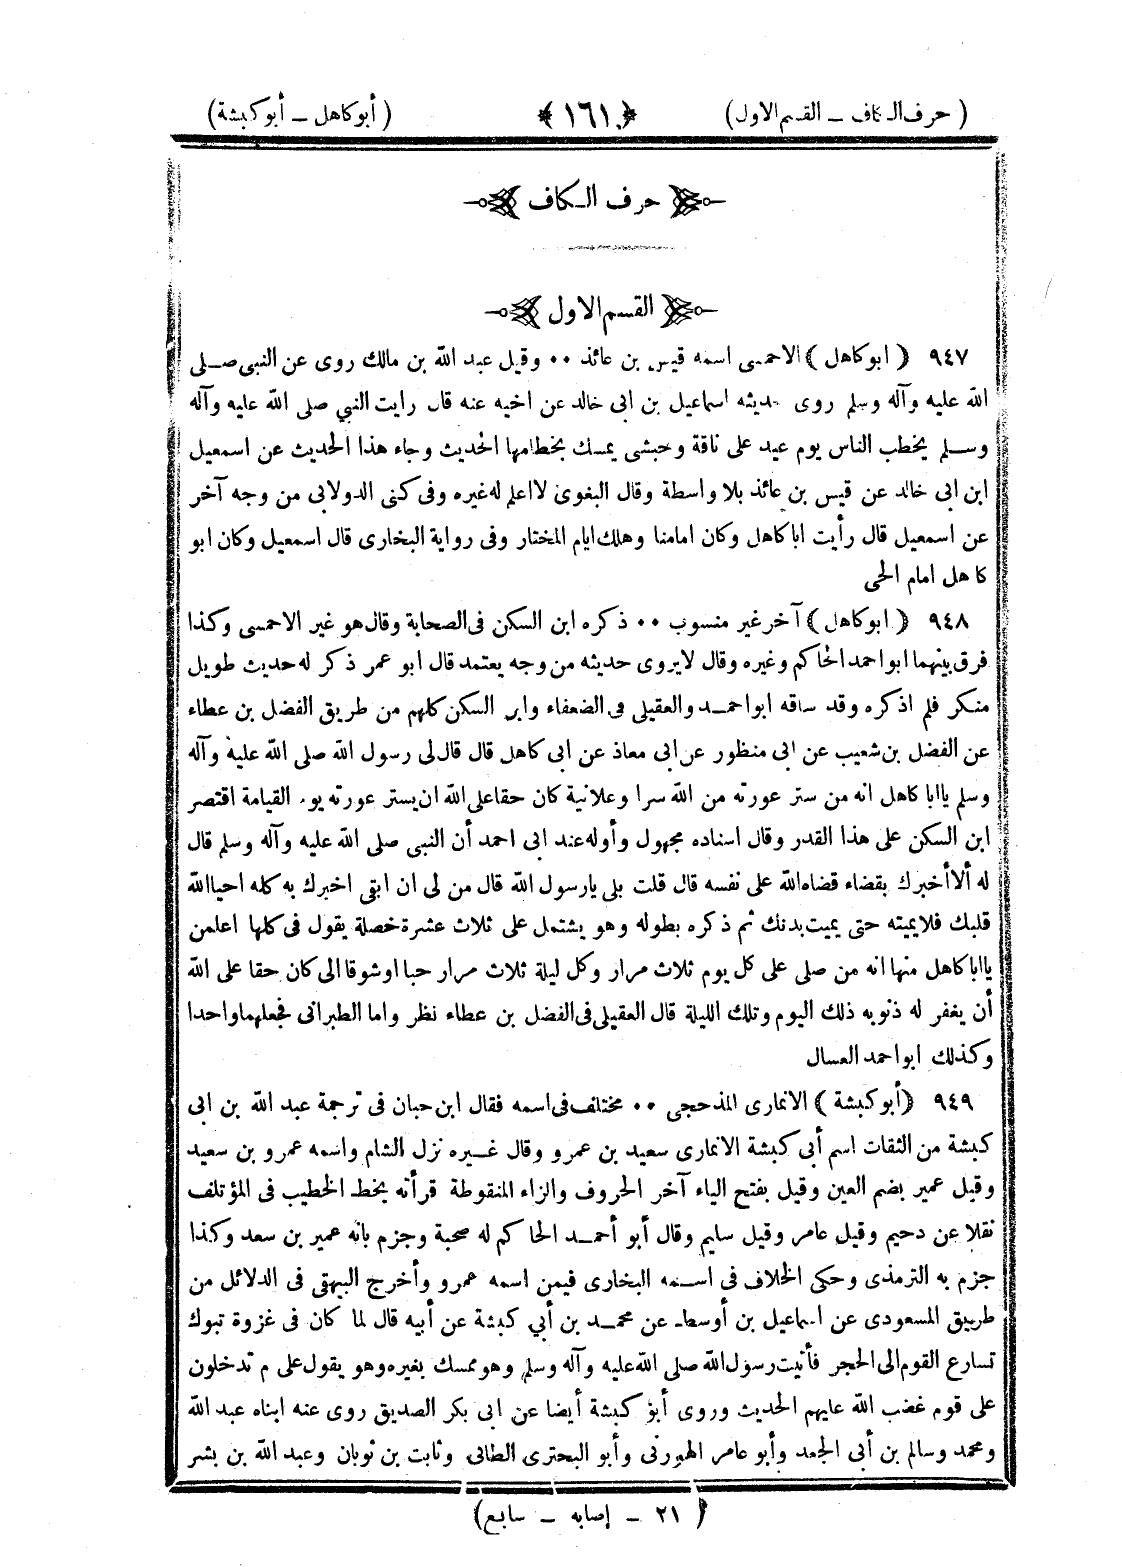 ( حرف الكاف – القسم الاول )
﴿١٦١﴾
( أبو كاهل – أبو كبشة )
حرف الكاف
القسم الاول
٩٤٧ ( ابو كاهل ) الاحمسى اسمه قيس بن عائذ ٠٠ وقيل عبد الله بن مالك روى عن النبى صلى
الله عليه وآله وسلم روى حديثه اسماعيل بن ابى خالد عن اخيه عنه قال رايت النبي صلى الله عليه وآله
وسلم يخطب الناس يوم عيد على ناقة وحبشى يمسك بخطامها الحديث وجاء هذا الحديث عن اسمعيل
ابن ابى خالد عن قيس بن عائذ بلا واسطة وقال البغوى لا اعلم له غيره وفى كنى الدولابى من وجه آخر
عن اسمعيل قال رأيت ابا كاهل وكان امامنا وهلك ايام المختار وفى رواية البخارى قال اسمعيل وكان ابو
كاهل امام الحى
٩٤٨ ( ابو كاهل ) آخر غير منسوب ٠٠ ذكره ابن السكن فى الصحابة وقال هو غير الاحمسى وكذا
فرق بينهما ابو احمد الحاكم وغيره وقال لا يروى حديثه من وجه يعتمد قال ابو عمر ذكر له حديث طويل
منكر فلم اذكره وقد ساقه ابو احمد والعقيلى فى الضعفاء وابن السكن كلهم من طريق الفضل بن عطاء
عن الفضل بن شعيب عن ابى منظور عن ابى معاذ عن ابى كاهل قال قال لى رسول الله صلى الله عليه وآله
وسلم يا ابا كاهل انه من ستر عورته من الله سرا وعلانية كان حقا على الله ان يستر عورته يوم القيامة اقتصر
ابن السكن على هذا القدر وقال اسناده مجهول وأوله عند ابى احمد أن النبى صلى الله عليه وآله وسلم قال
له ألا أخبرك بقضاء قضاه الله على نفسه قال قلت بلى يا رسول الله قال من لى ان ابقى اخبرك به كله احيا الله
قلبك فلا يميته حتى يميت بدنك ثم ذكره بطوله وهو يشتمل على ثلاث عشرة خصلة يقول فى كلها اعلمن
يا ابا كاهل منها انه من صلى على كل يوم ثلاث مرار وكل ليلة ثلاث مرار حبا او شوقا الى كان حقا على الله
أن يغفر له ذنوبه ذلك اليوم وتلك الليلة قال العقيلى فى الفضل بن عطاء نظر واما الطبرانى فجعلهما واحدا
وكذلك ابو احمد العسال
٩٤٩ ( أبو كبشة ) الانمارى المذحجى ٠٠ مختلف فى اسمه فقال ابن حبان فى ترجمة عبد الله بن ابى
كبشة من الثقات اسم أبى كبشة الانمارى سعيد بن عمرو وقال غيره نزل الشام واسمه عمرو بن سعيد
وقيل عمير بضم العين وقيل بفتح الياء آخر الحروف والزاء المنقوطة قرأته بخط الخطيب فى المؤتلف
نقلا عن دحيم وقيل عامر وقيل سليم وقال أبو أحمد الحاكم له صحبة وجزم بانه عمير بن سعد وكذا
جزم به الترمذى وحكى الخلاف فى اسمه البخارى فيمن اسمه عمرو وأخرج البيهقى فى الدلائل من
طريق المسعودى عن اسماعيل بن أوسط عن محمد بن أبي كبشة عن أبيه قال لما كان فى غزوة تبوك
تسارع القوم الى الحجر فأتيت رسول الله صلى الله عليه وآله وسلم وهو ممسك بغيره وهو يقول على م تدخلون
على قوم غضب الله عليهم الحديث وروى أبو كبشة أيضا عن ابى بكر الصديق روى عنه ابناه عبد الله
ومحمد وسالم بن أبى الجعد وأبو عامر الهوزنى وأبو البحترى الطائى وثابت بن ثوبان وعبد الله بن بشر
( ٢١ – إصابه – سابع )